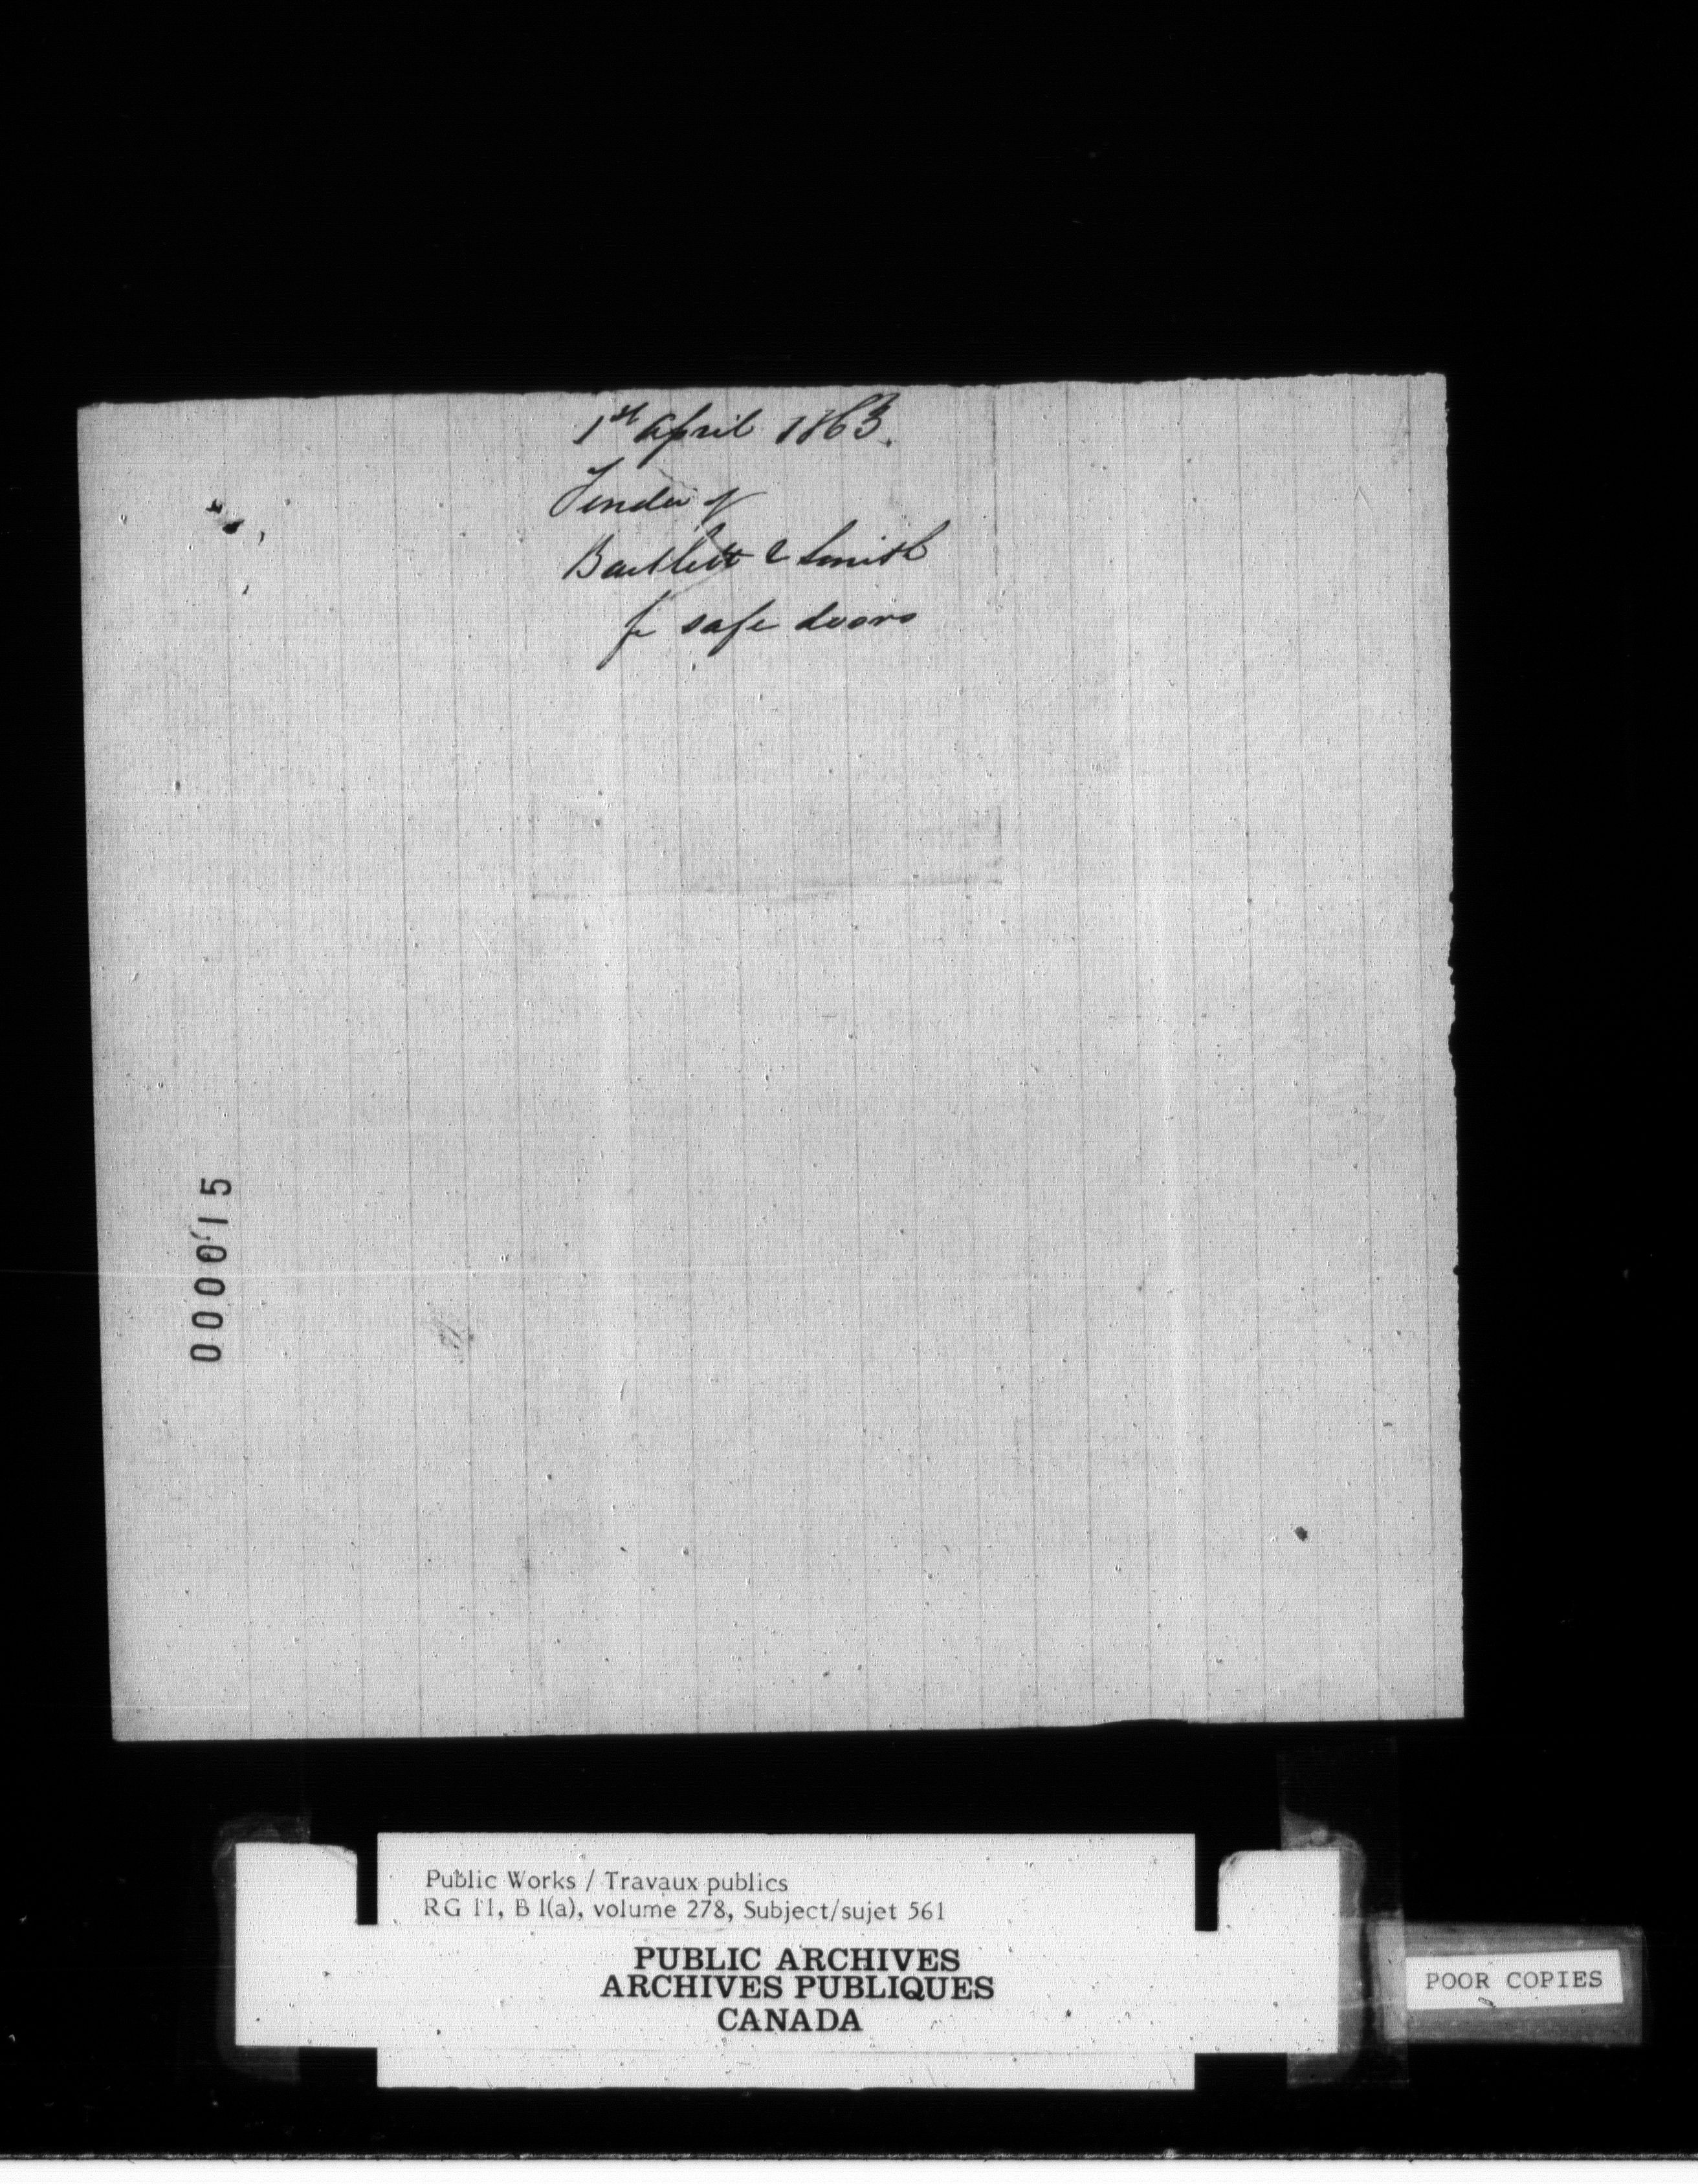 1st April 1863.
Tender of
Bartlett & Smith
for safe doors
000015
Public Works / Travaux publics
RG 11, B 1(a), volume 278, Subject/sujet 561
PUBLIC ARCHIVES
ARCHIVES PUBLIQUES
CANADA
POOR COPIES